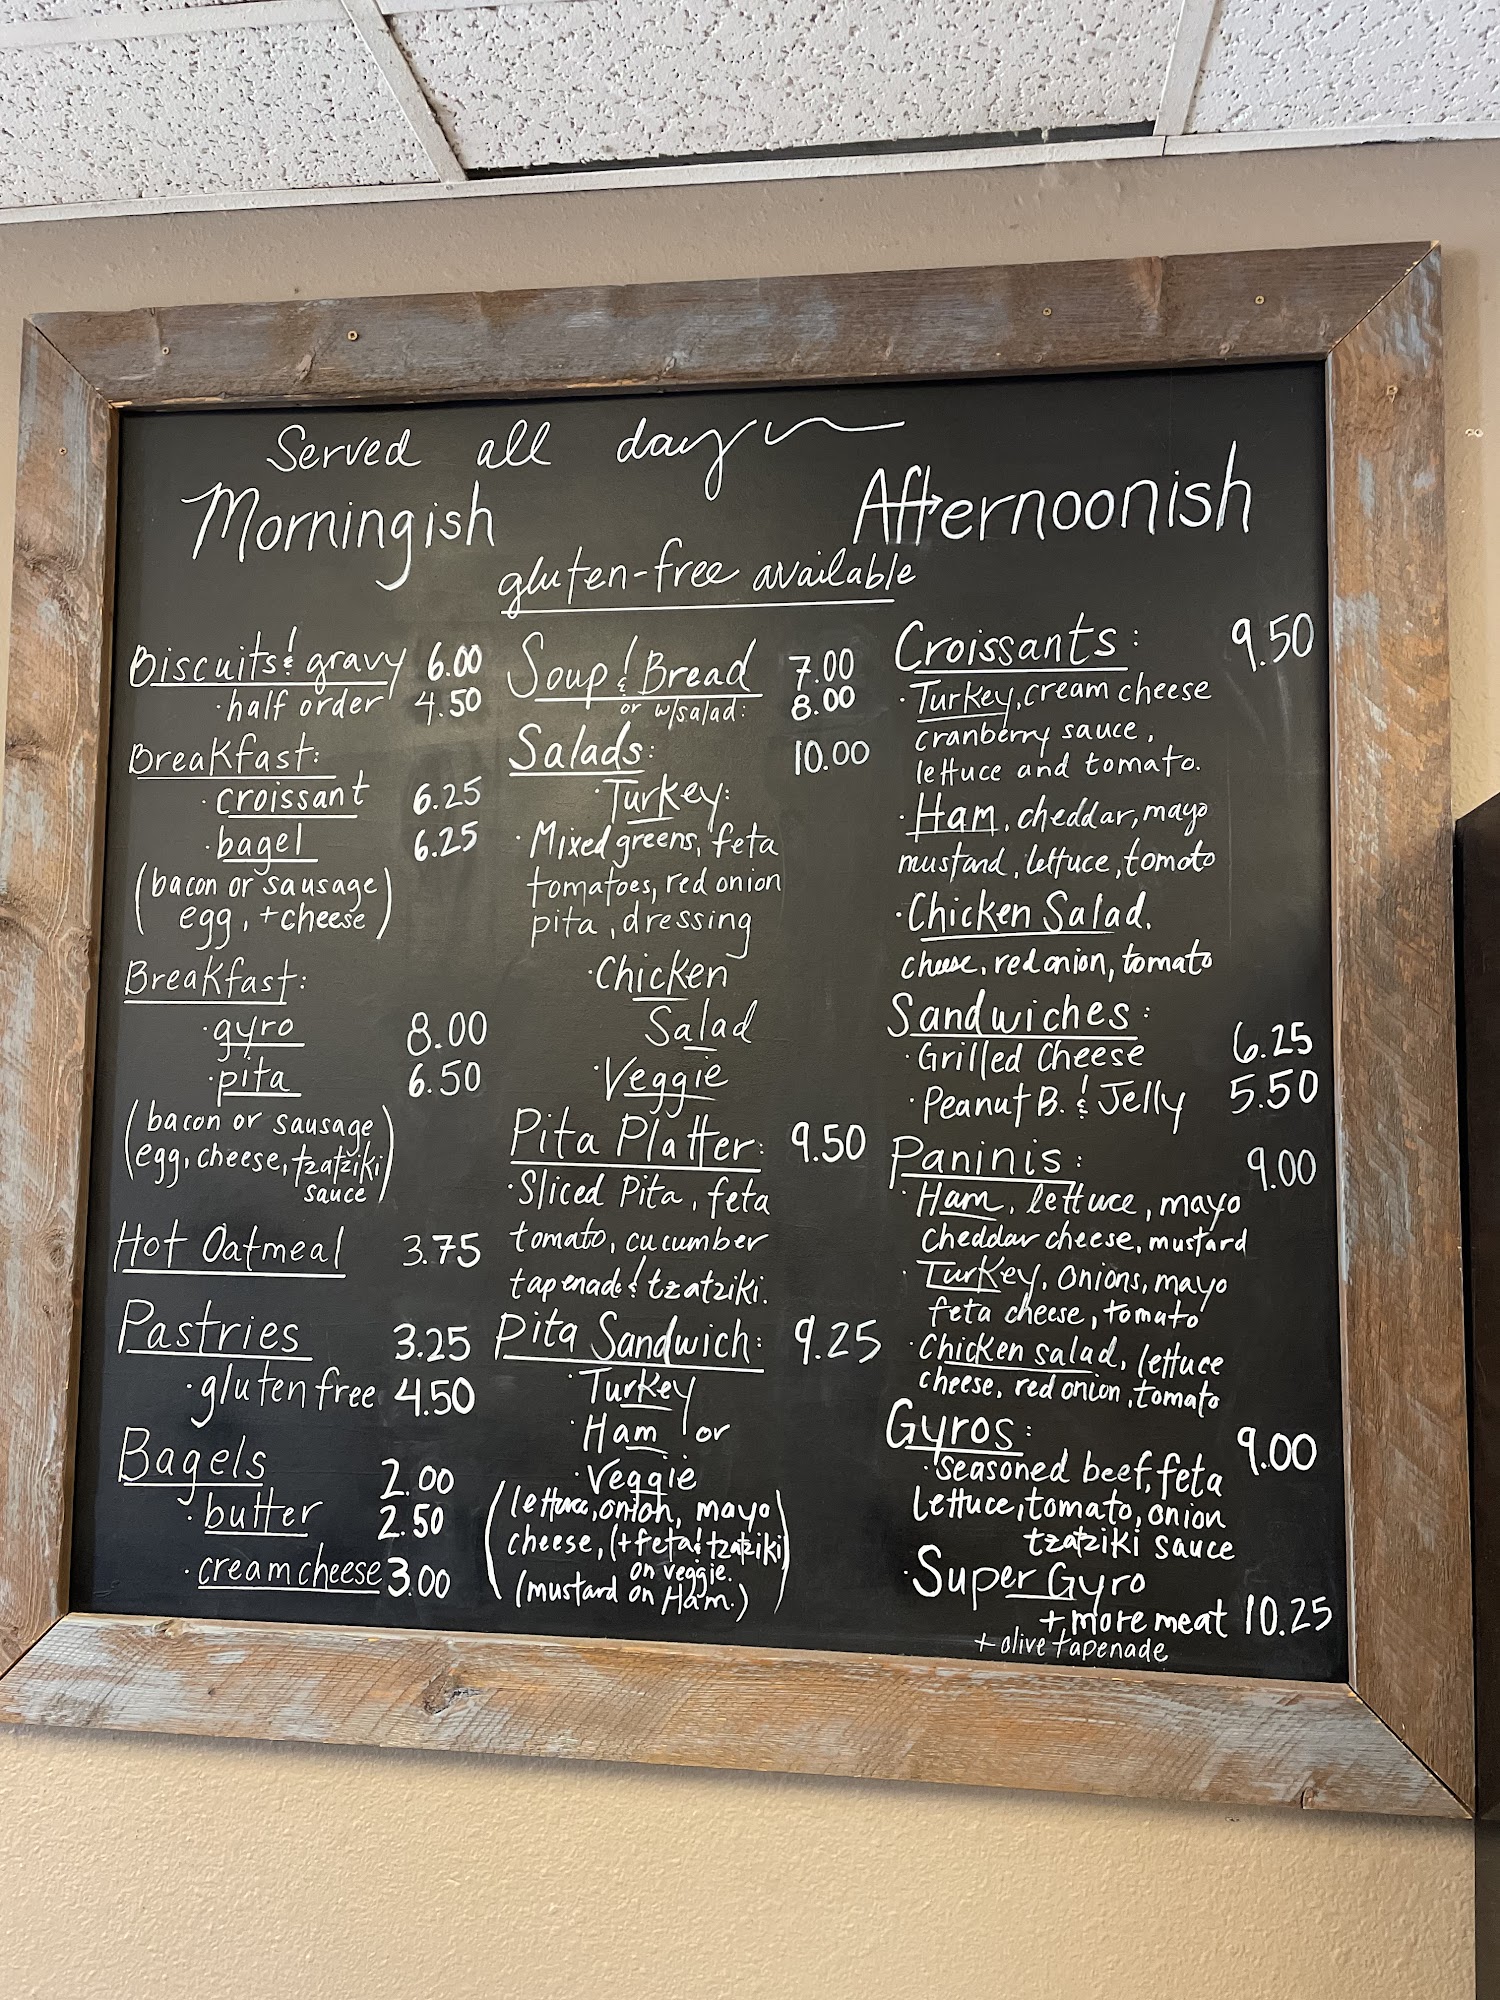 Served all day
Morningish
Afternoonish
gluten-free available
Biscuits & gravy 6.00
· half order 4.50
Breakfast:
· croissant 6.25
· bagel 6.25
(bacon or sausage
egg, + cheese)
Breakfast:
· gyro 8.00
· pita 6.50
(bacon or sausage
egg, cheese, tzatziki
sauce)
Hot Oatmeal 3.75
Pastries 3.25
· gluten free 4.50
Bagels 2.00
· butter 2.50
· cream cheese 3.00
Soup & Bread 7.00
or w/salad: 8.00
Salads: 10.00
· Turkey:
· Mixed greens, feta
tomatoes, red onion
pita, dressing
· Chicken
Salad
· Veggie
Pita Platter: 9.50
· Sliced Pita, feta
tomato, cucumber
tapenade & tzatziki.
Pita Sandwich: 9.25
· Turkey
· Ham or
· Veggie
(lettuce, onion, mayo
cheese, (+ feta & tzatziki)
on veggie.
(mustard on Ham.)
Croissants: 9.50
· Turkey, cream cheese
cranberry sauce,
lettuce and tomato.
· Ham, cheddar, mayo
mustard, lettuce, tomato
· Chicken Salad,
cheese, red onion, tomato
Sandwiches:
· Grilled Cheese 6.25
· Peanut B. & Jelly 5.50
Paninis: 9.00
· Ham, lettuce, mayo
cheddar cheese, mustard
· Turkey, onions, mayo
feta cheese, tomato
· Chicken salad, lettuce
cheese, red onion, tomato
Gyros: 9.00
· seasoned beef, feta
lettuce, tomato, onion
tzatziki sauce
· Super Gyro
+ more meat 10.25
+ olive tapenade